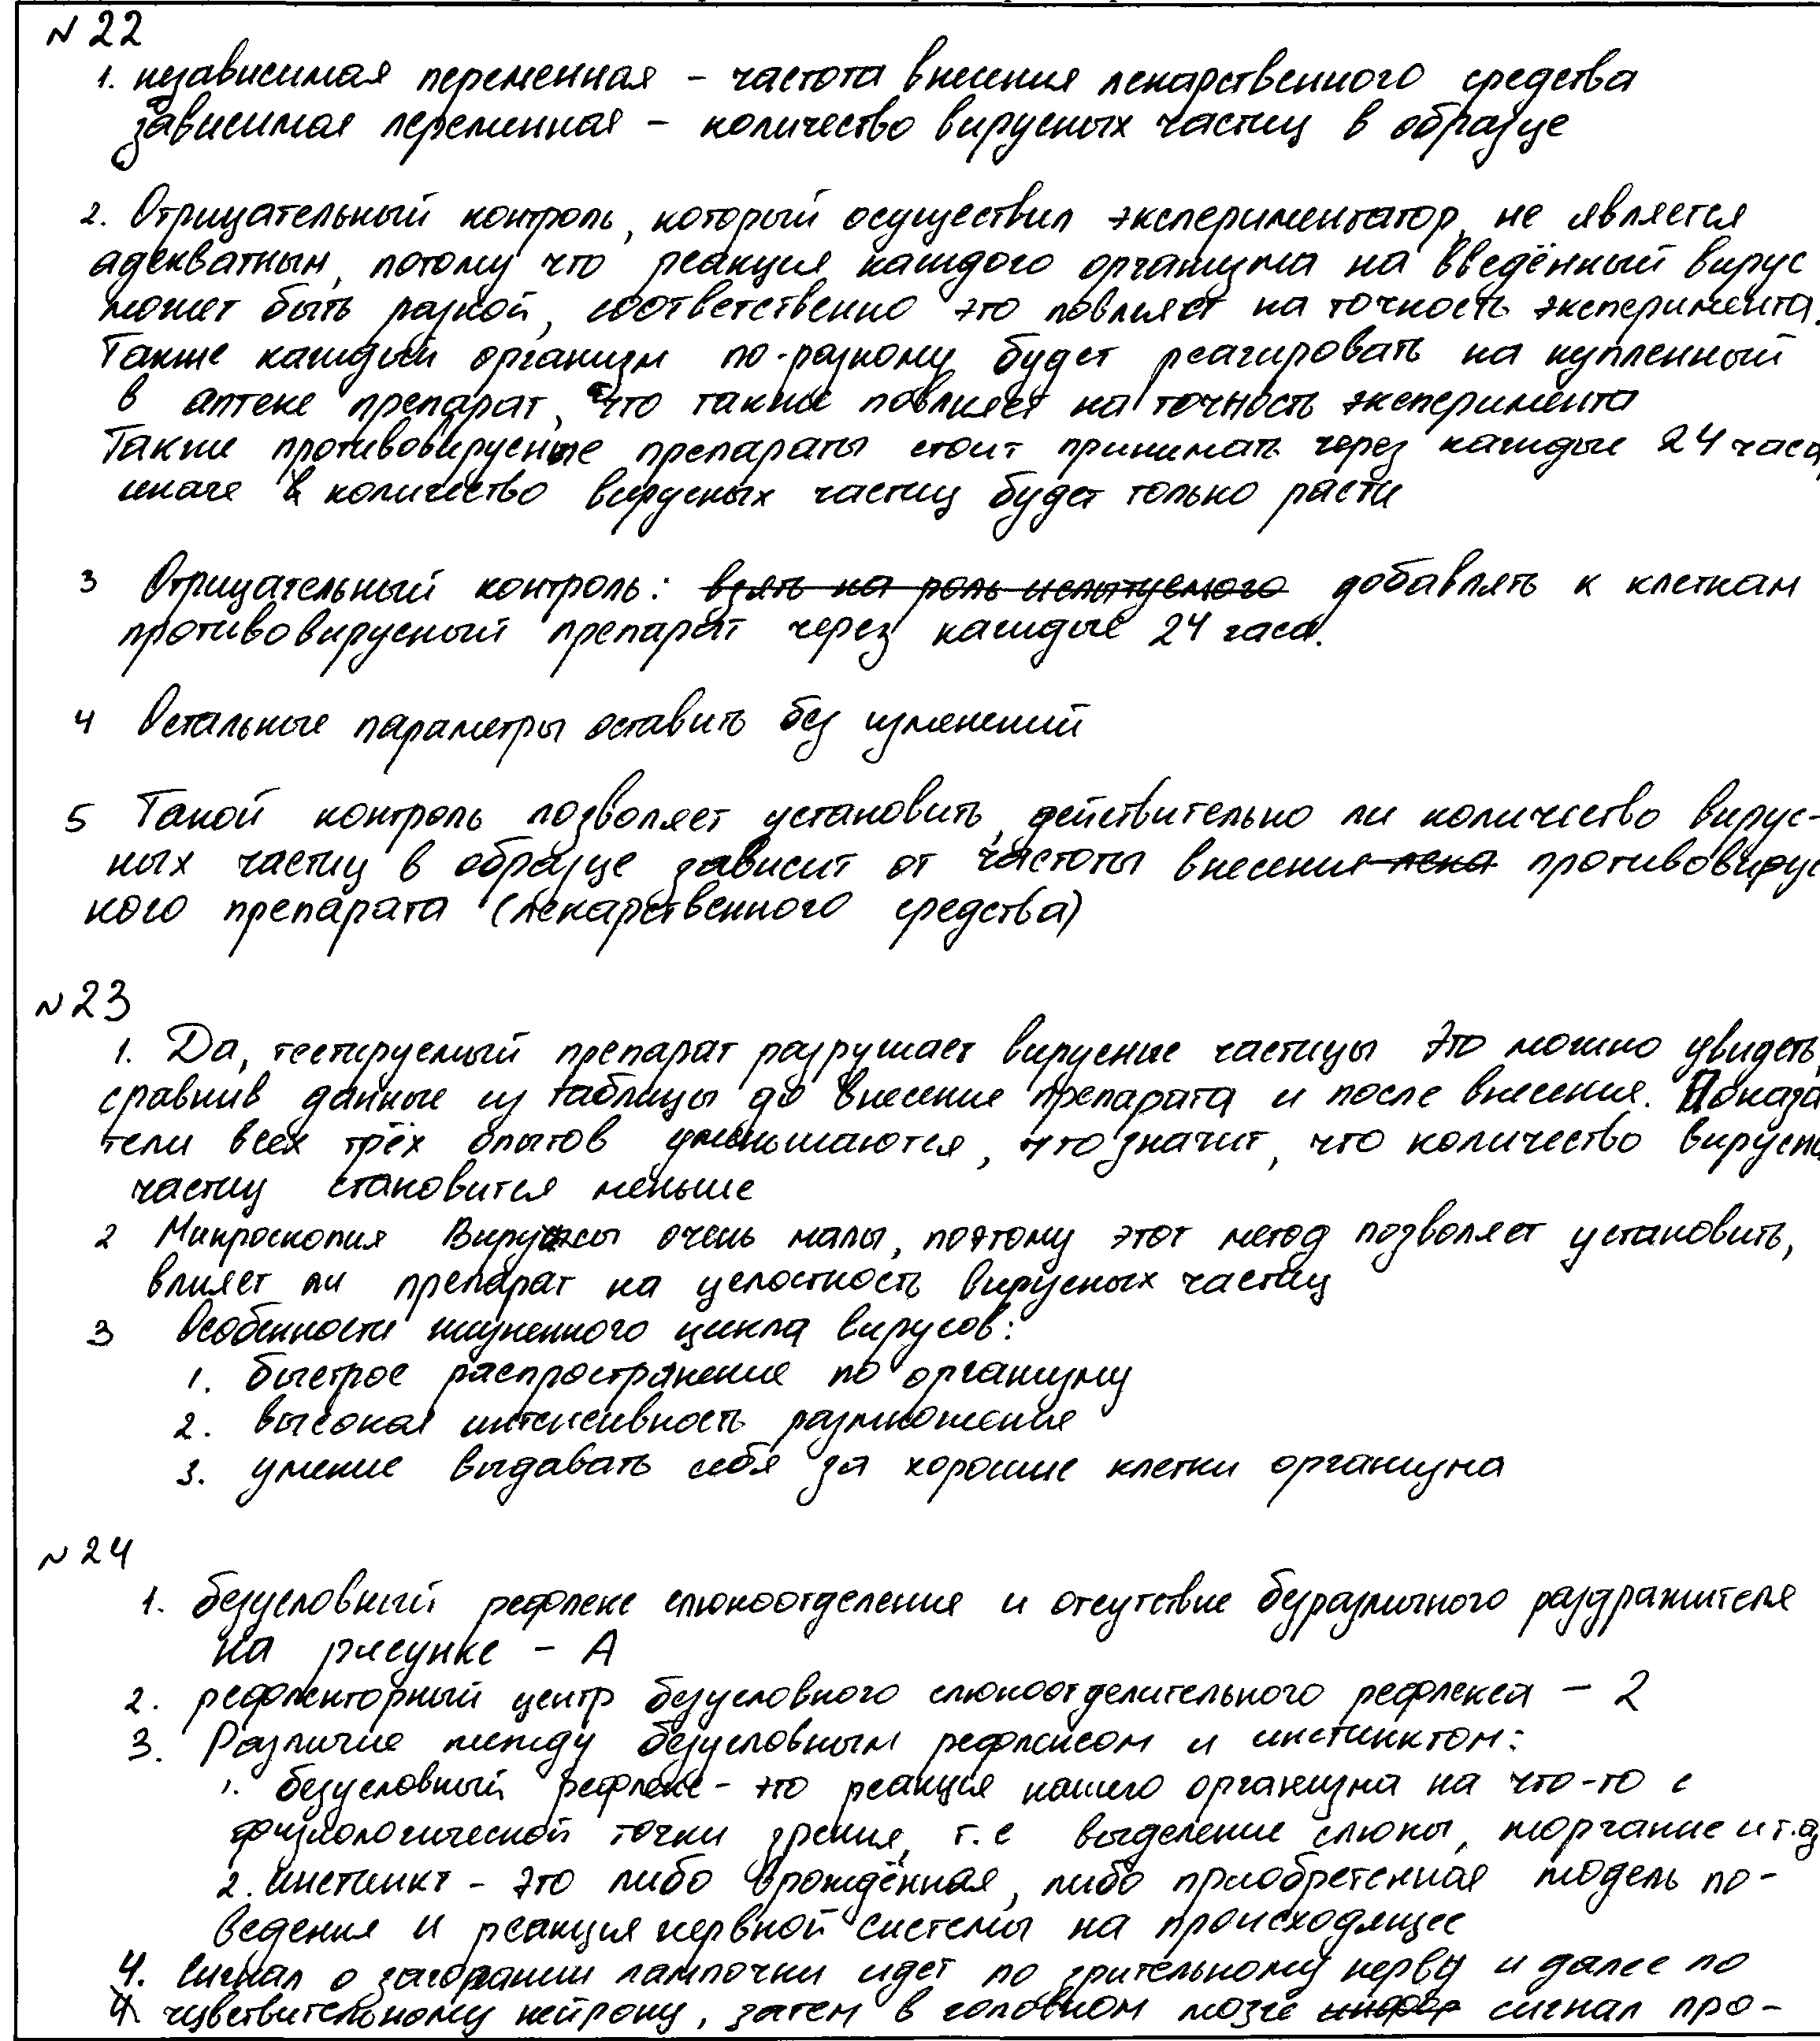 №22
1. независимая переменная – частота внесения лекарственного средства
зависимая переменная – количество вирусных частиц в образце
2. Отрицательный контроль, который осуществил экспериментатор, не является
адекватным, потому что реакция каждого организма на введённый вирус
может быть разной, соответственно это повлияет на точность эксперимента.
Также каждый организм по-разному будет реагировать на купленный
в аптеке препарат, что также повлияет на точность эксперимента
Также противовирусные препараты стоит принимать через каждые 24 часа,
иначе количество вирусных частиц будет только расти
3 Отрицательный контроль: взять на роль испытуемого добавлять к клеткам
противовирусный препарат через каждые 24 часа.
4 Остальные параметры оставить без изменений
5 Такой контроль позволяет установить, действительно ли количество вирус-
ных частиц в образце зависит от частоты внесения лека противовирус
ного препарата (лекарственного средства)
№23
1. Да, тестируемый препарат разрушает вирусные частицы Это можно увидеть,
сравнив данные из таблицы до внесение препарата и после внесения. Показа
тели всех трёх опытов уменьшаются, что значит, что количество вирусны
частиц становится меньше
2 Микроскопия Вирусы очень малы, поэтому этот метод позволяет установить,
влияет ли препарат на целостность вирусных частиц
3 Особенности жизненного цикла вирусов:
1. быстрое распространение по организму
2. высокая интенсивность размножения
3. умение выдавать себя за хорошие клетки организма
№24
1. безусловный рефлекс слюноотделения и отсутствие безразличного раздражителя
на рисунке – А
2. рефлекторный центр безусловного слюноотделительного рефлекса – 2
3. Различие между безусловным рефлексом и инстинктом:
1. безусловный рефлекс - это реакция нашего организма на что-то с
физиологической точки зрения, т.е выделение слюны, моргание и т.д
2. инстинкт - это либо врождённая, либо приобретенная модель по-
ведения и реакция нервной системы на происходящее
4. Сигнал о загорании лампочки идет по зрительному нерву и далее по
чувствительному нейрону, затем в головном мозге сигнал про-